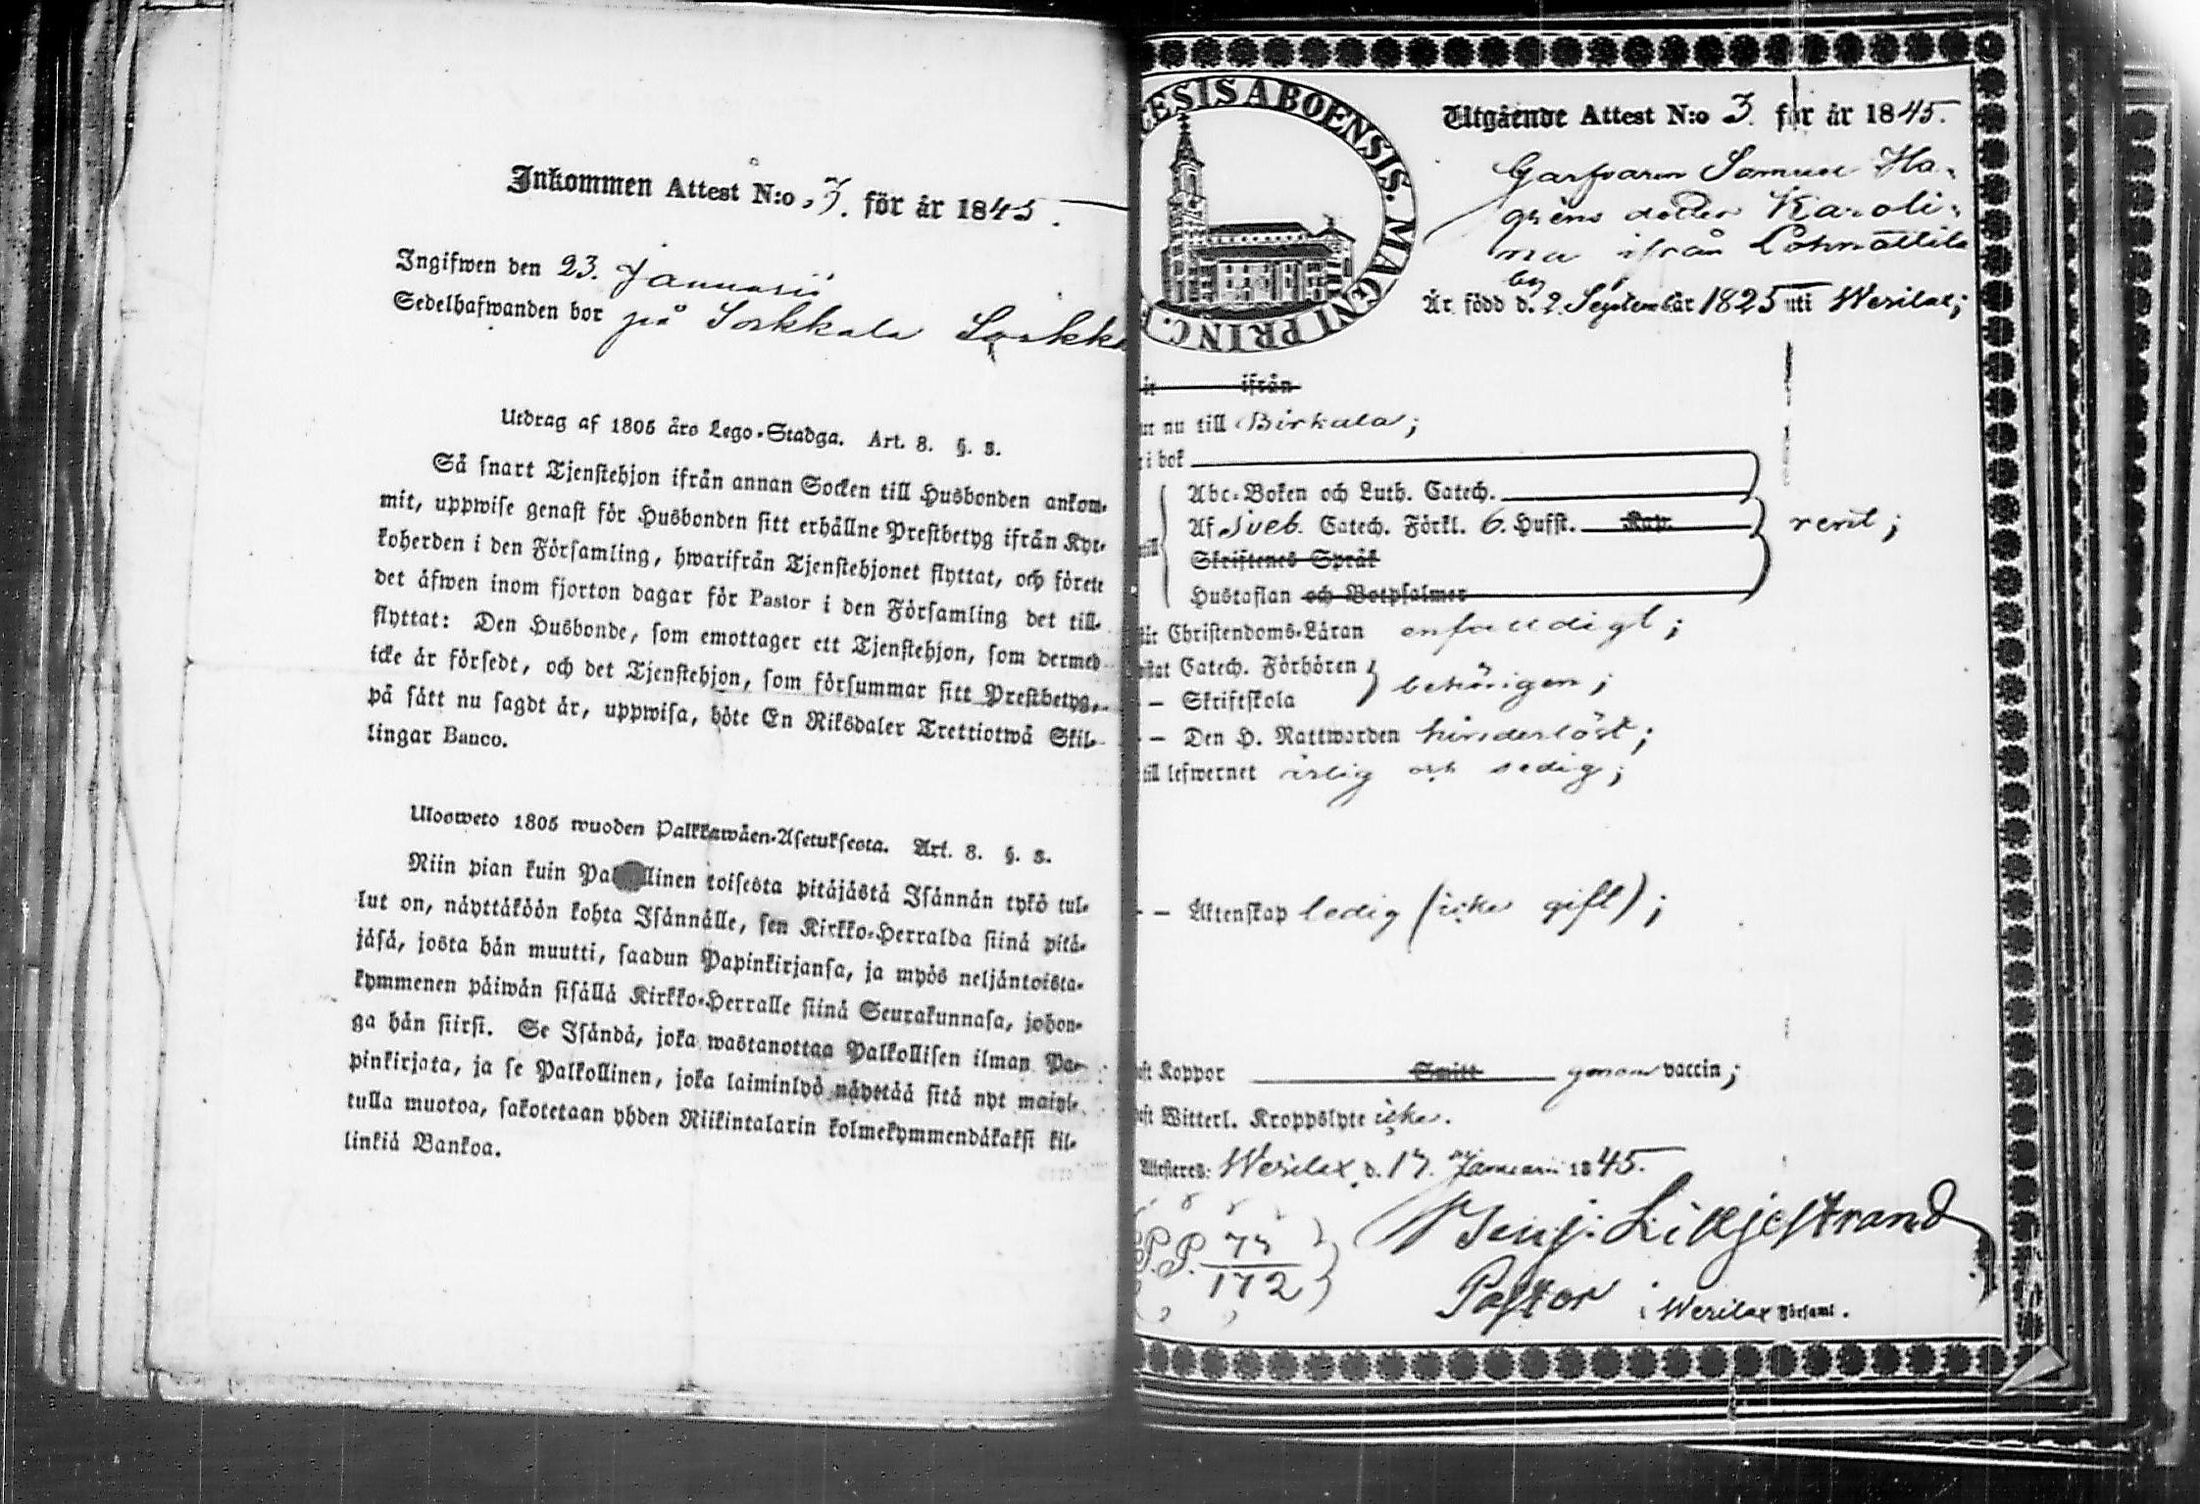 Inkommen Attest N:o 3. för år 1845.
Ingifwen den 23. Januarii
Sedelhafwanden bor på Sorkkala Sorkka
Utdrag af 1805 års Lego-Stadga. Art. 8. §. 3.
Så snart Tjenstehjon ifrån annan Socken till Husbonden ankom-
mit, uppwise genast för Husbonden sitt erhållne Prestbetyg ifrån Kyr-
koherden i den Församling, hwarifrån Tjenstehjonet flyttat, och förete
det äfwen inom fjorton dagar för Pastor i den Församling det till-
flyttat: Den Husbonde, som emottager ett Tjenstehjon, som dermed
icke är försedt, och det Tjenstehjon, som försummar sitt Prestbetyg,
på sätt nu sagdt är, uppwisa, böte En Riksdaler Trettiotwå Skil-
lingar Banco.
Ulosweto 1805 wuoden Palkkawäen-Asetuksesta. Art. 8. §. 3.
Niin pian kuin Pa llinen toisesta pitäjästä Isännän tykö tul-
lut on, näyttäköön kohta Isännälle, sen Kirkko-Herralda siinä pitä-
jäsä, josta hän muutti, saadun Papinkirjansa, ja myös neljäntoista-
kymmenen päiwän sisällä Kirkko-Herralle siinä Seurakunnasa, johon-
ga hän siirsi. Se Isändä, joka wastanottaa Palkollisen ilman Pa-
pinkirjata, ja se Palkollinen, joka laiminlyö näyttää sitä nyt maini-
tulla muotoa, sakotetaan yhden Riikintalarin kolmekymmendäkaksi kil-
linkiä Bankoa.
CESIS ABOENSIS. MAGNI PRINC. F
Utgående Attest N:o 3. för år 1845.
Garfvaren Samuel Ha-
gréns dotter Karoli-
na ifrån Lahnottila
by
Är född d. 2. September år 1825 uti Werilax;
ifrån
nu till Birkala;
i bok
Abc-Boken och Luth. Catech.
Af Sveb. Catech. Förkl. 6. Hufst. Kap. rent;
Skriftenes Språk
Hustaflan och Botpsalmer
Christendoms-Läran enfaldigt;
Catech. Förhören
— Skriftskola behörigen;
— — Den H. Nattwarden hinderlöst;
till lefwernet ärlig och sedig;
— — Äktenskap ledig (icke gift);
Koppor Smitt genom vaccin;
Witterl. Kroppslyte icke.
Attesteres: Werilax d. 17. Januarii 1845.
P.P. 77
172
Benj. Liljestrand
Pastor i Werilax Församl.